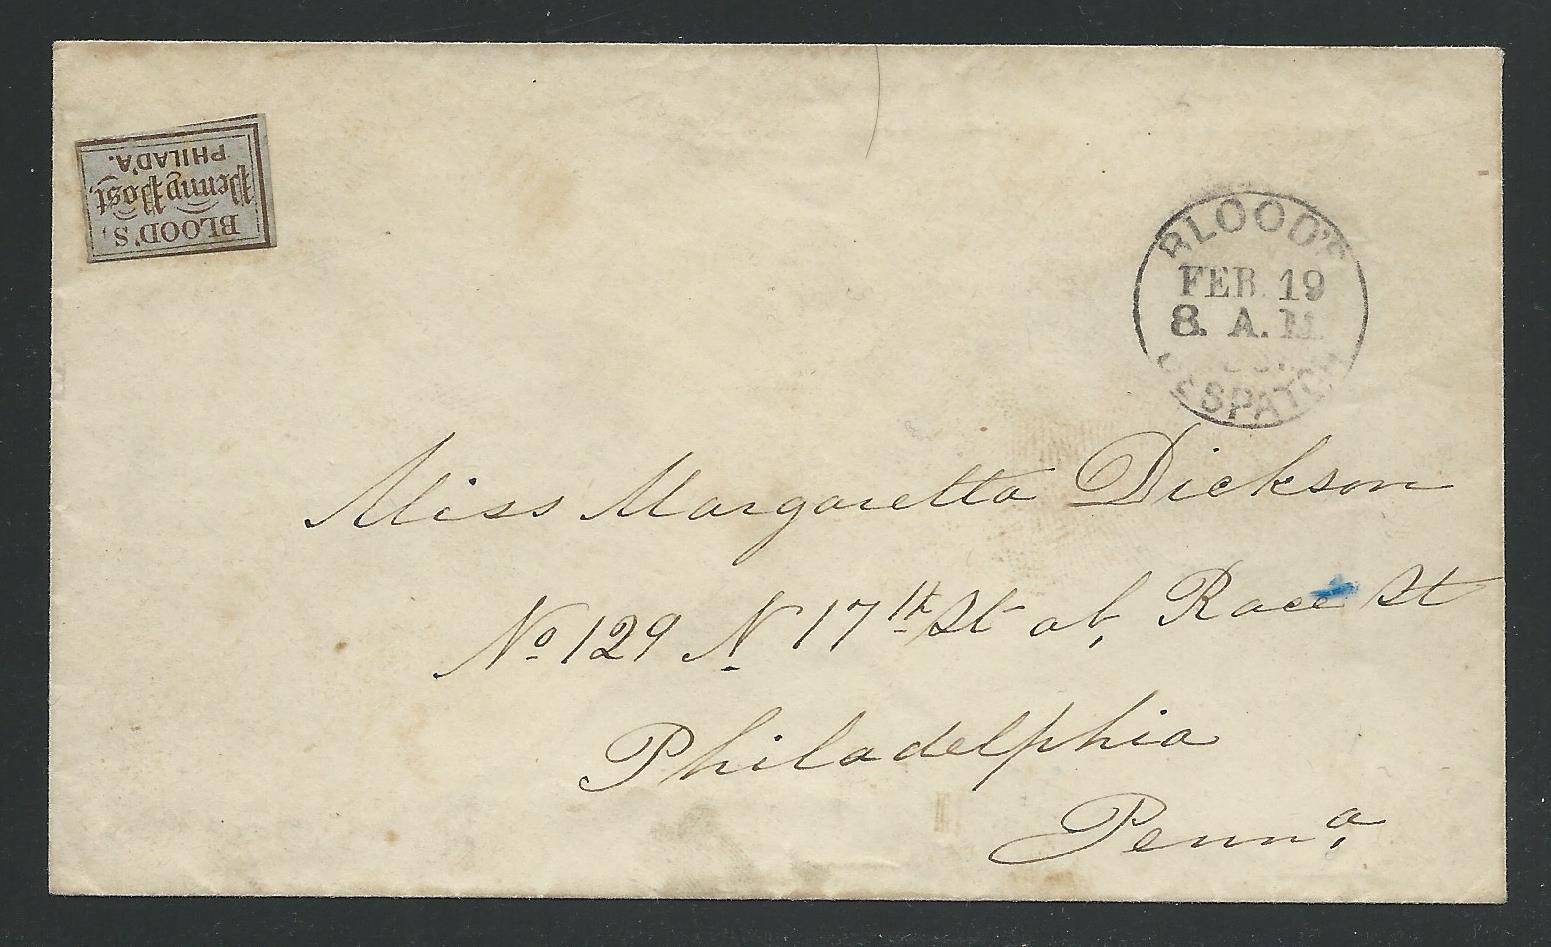 BLOOD'S,
Penny Post,
PHILAD'A.
BLOOD'S
FEB. 19
8. A.M.
DESPATCH
Miss Margaretta Dickson
No 129 N 17th St ab, Race St
Philadelphia
Penna,